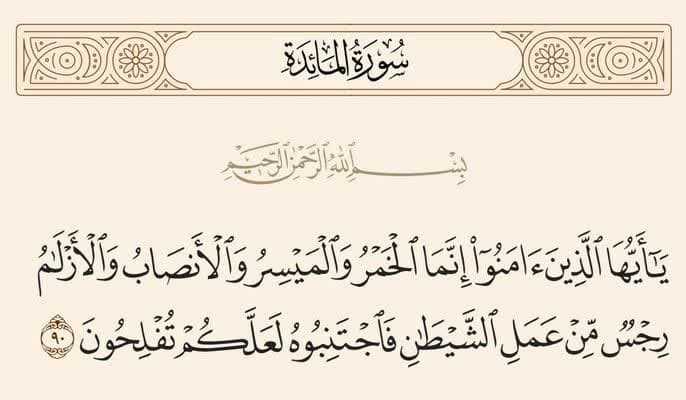 سُورَةُ المَائِدَةِ
بِسْمِ ٱللَّهِ ٱلرَّحْمَٰنِ ٱلرَّحِيمِ
يَـٰٓأَيُّهَا ٱلَّذِينَ ءَامَنُوٓاْ إِنَّمَا ٱلْخَمْرُ وَٱلْمَيْسِرُ وَٱلْأَنصَابُ وَٱلْأَزْلَـٰمُ
رِجْسٌ مِّنْ عَمَلِ ٱلشَّيْطَـٰنِ فَٱجْتَنِبُوهُ لَعَلَّكُمْ تُفْلِحُونَ ٩٠